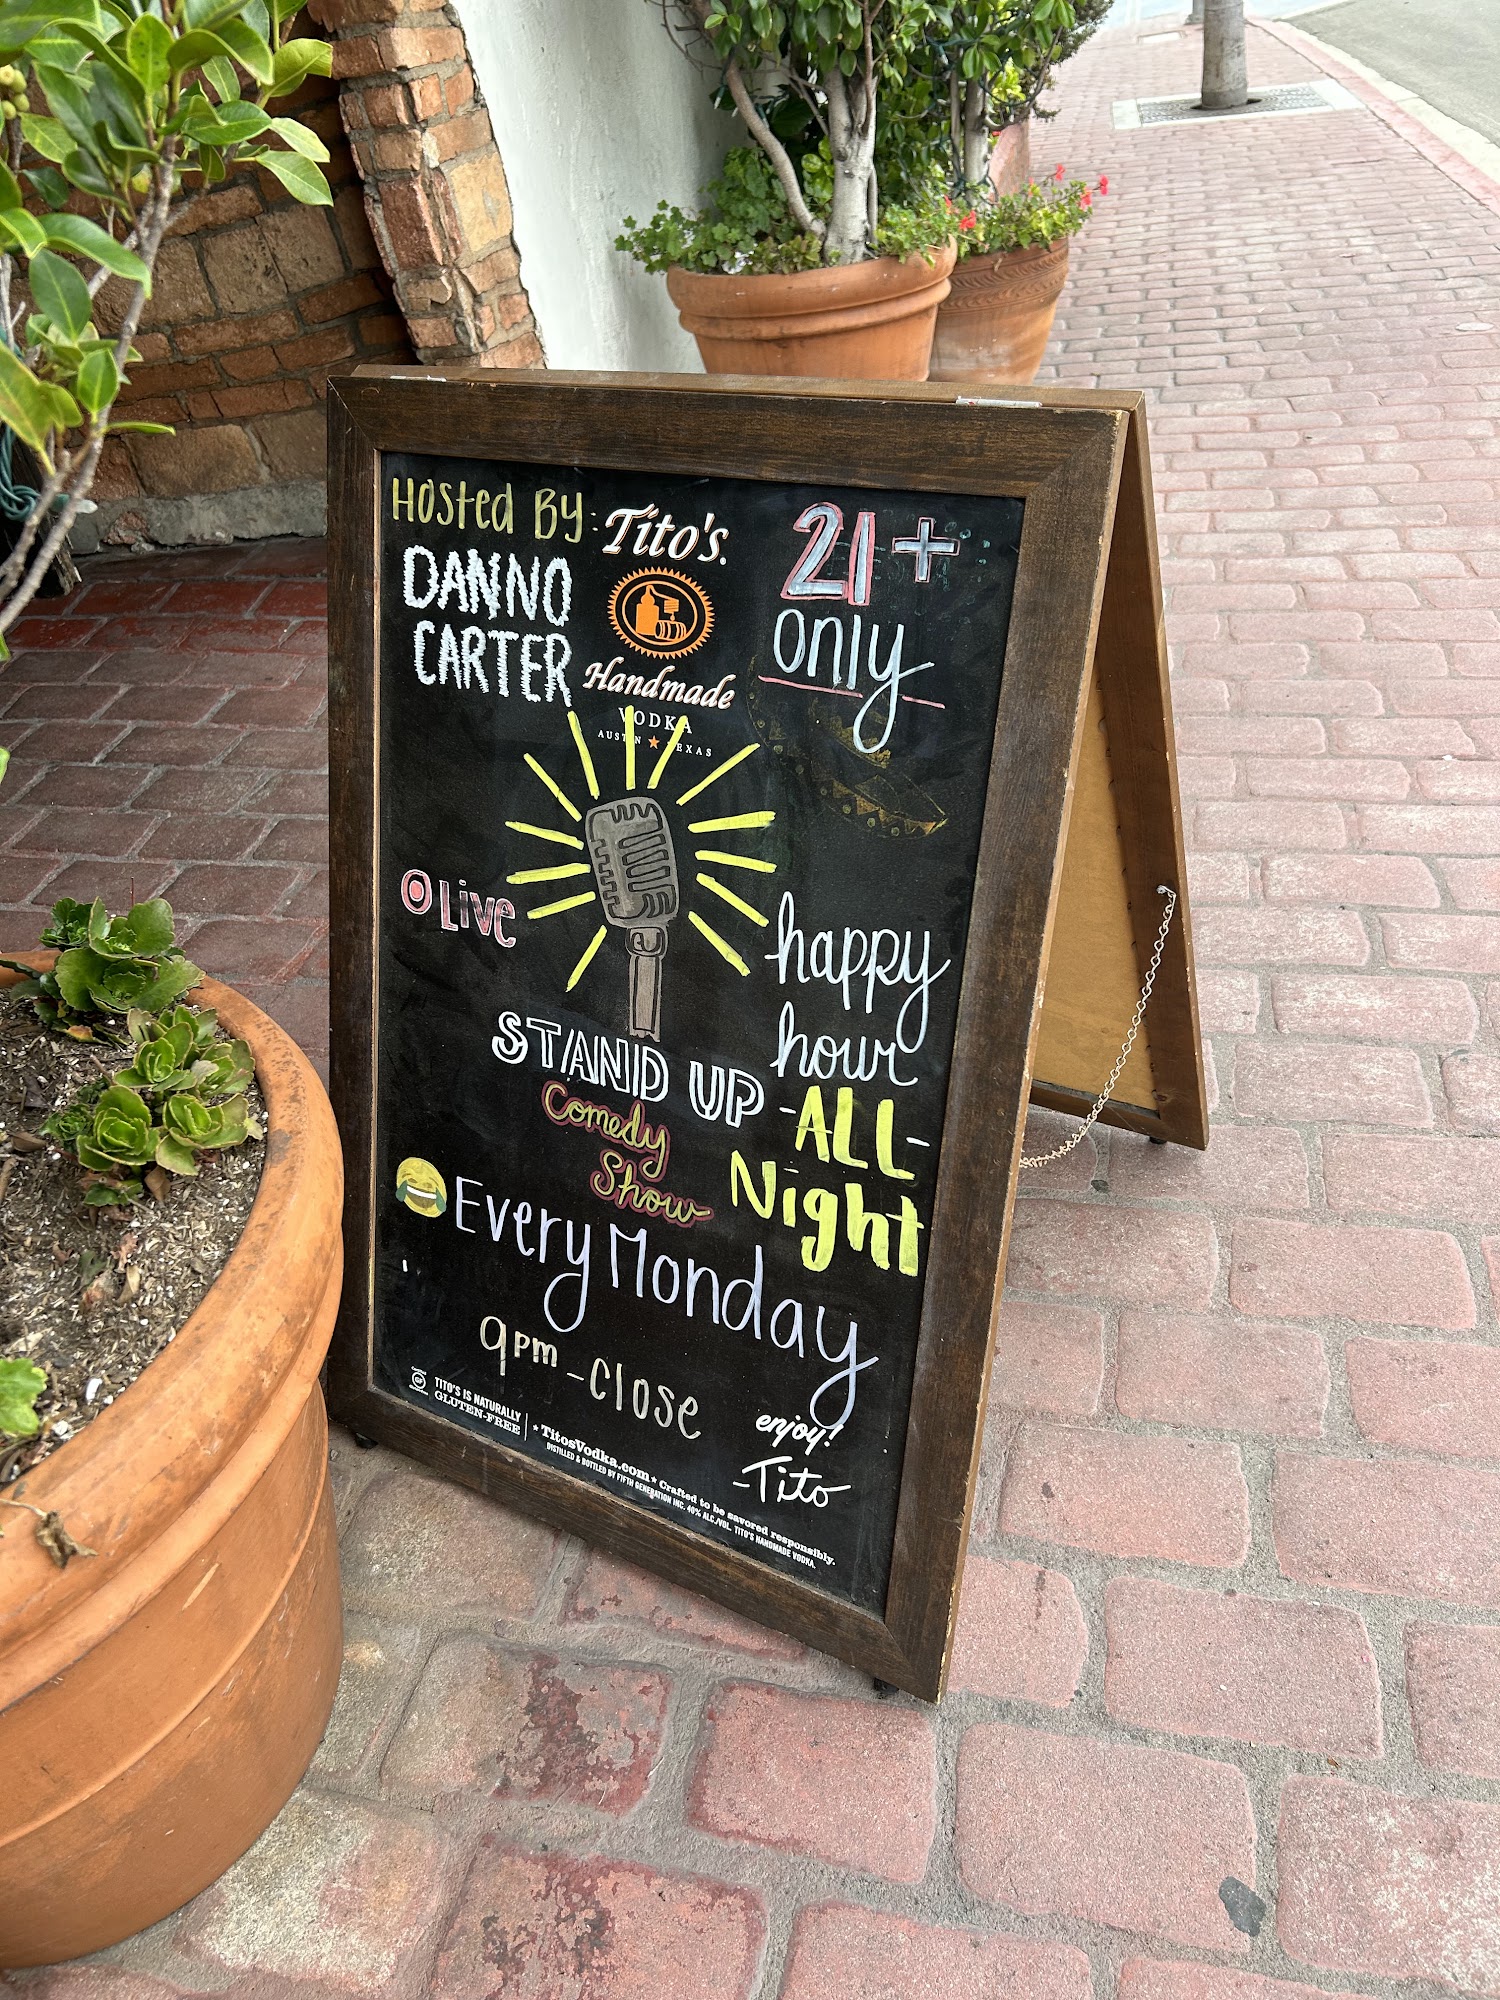 Hosted By:
DANNO
CARTER
Tito's.
Handmade
VODKA
AUSTIN ★ TEXAS
21+
only
LIVE
happy
hour
-ALL-
Night
STAND UP
Comedy
Show
Every Monday
9pm - close
TITO'S IS NATURALLY
GLUTEN-FREE
GF
* TitosVodka.com * Crafted to be savored responsibly.
DISTILLED & BOTTLED BY FIFTH GENERATION INC. 40% ALC./VOL. TITO'S HANDMADE VODKA.
enjoy!
-Tito